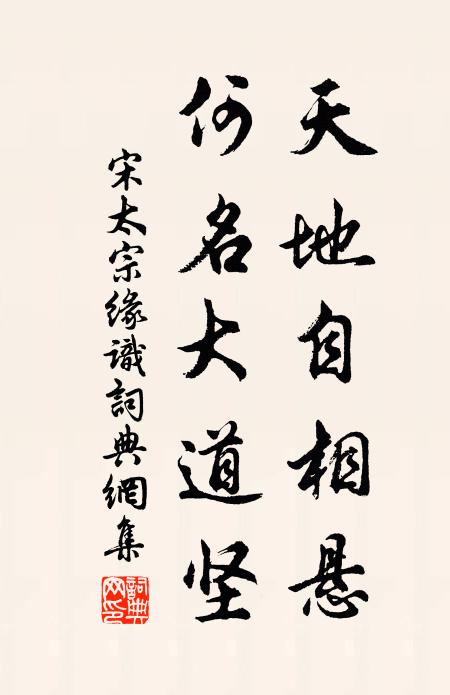 天地自相悬
何名大道坚
宋太宗缘識詞典網集
詞典
网印